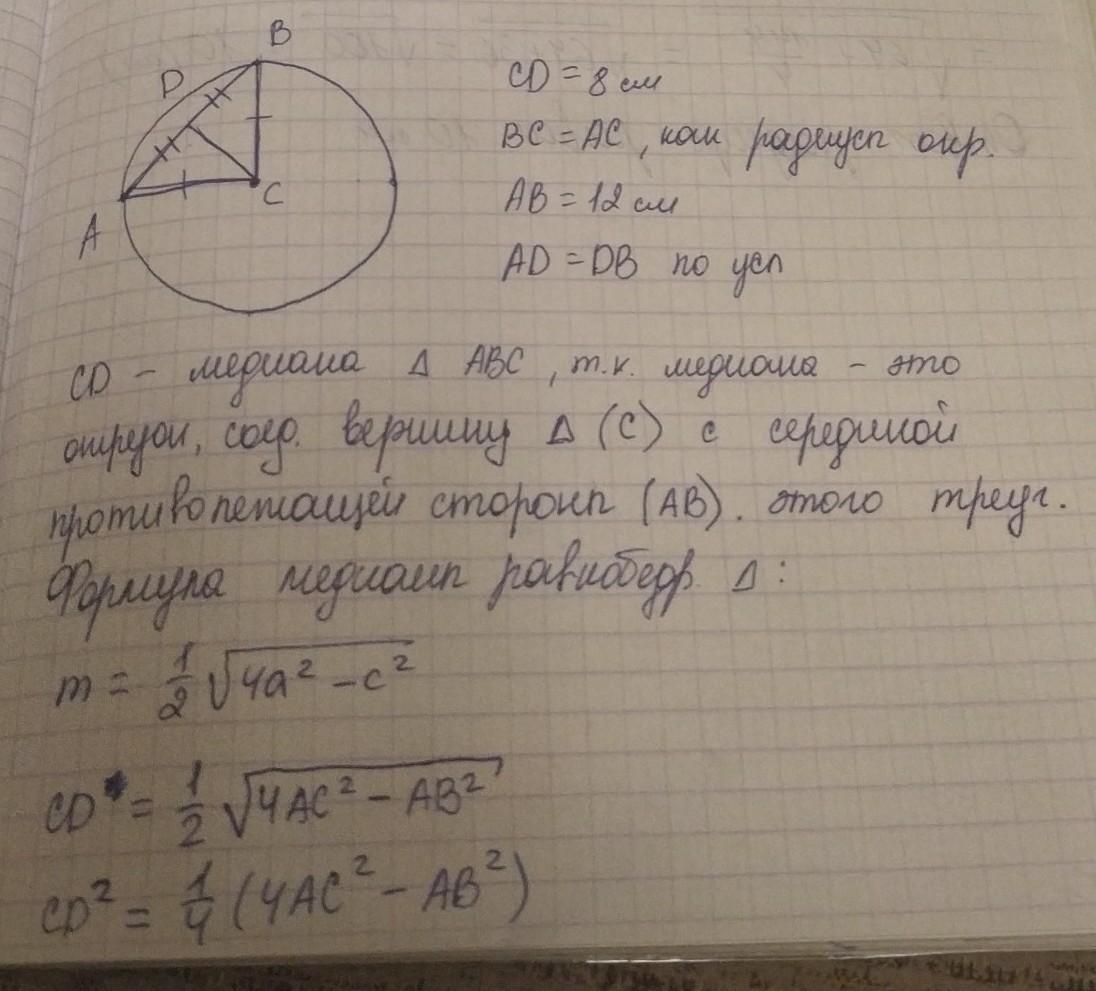 B
D
A
C
CD = 8 см
BC = AC, как радиусы окр.
AB = 12 см
AD = DB по усл
CD – медиана Δ ABC, т.к. медиана – это
отрезок, соед. вершину Δ (C) с серединой
противолежащей стороны (AB). этого треуг.
Формула медианы равнобедр. Δ:
m = 1/2 √(4a² – c²)
CD = 1/2 √(4AC² – AB²)
CD² = 1/4 (4AC² – AB²)